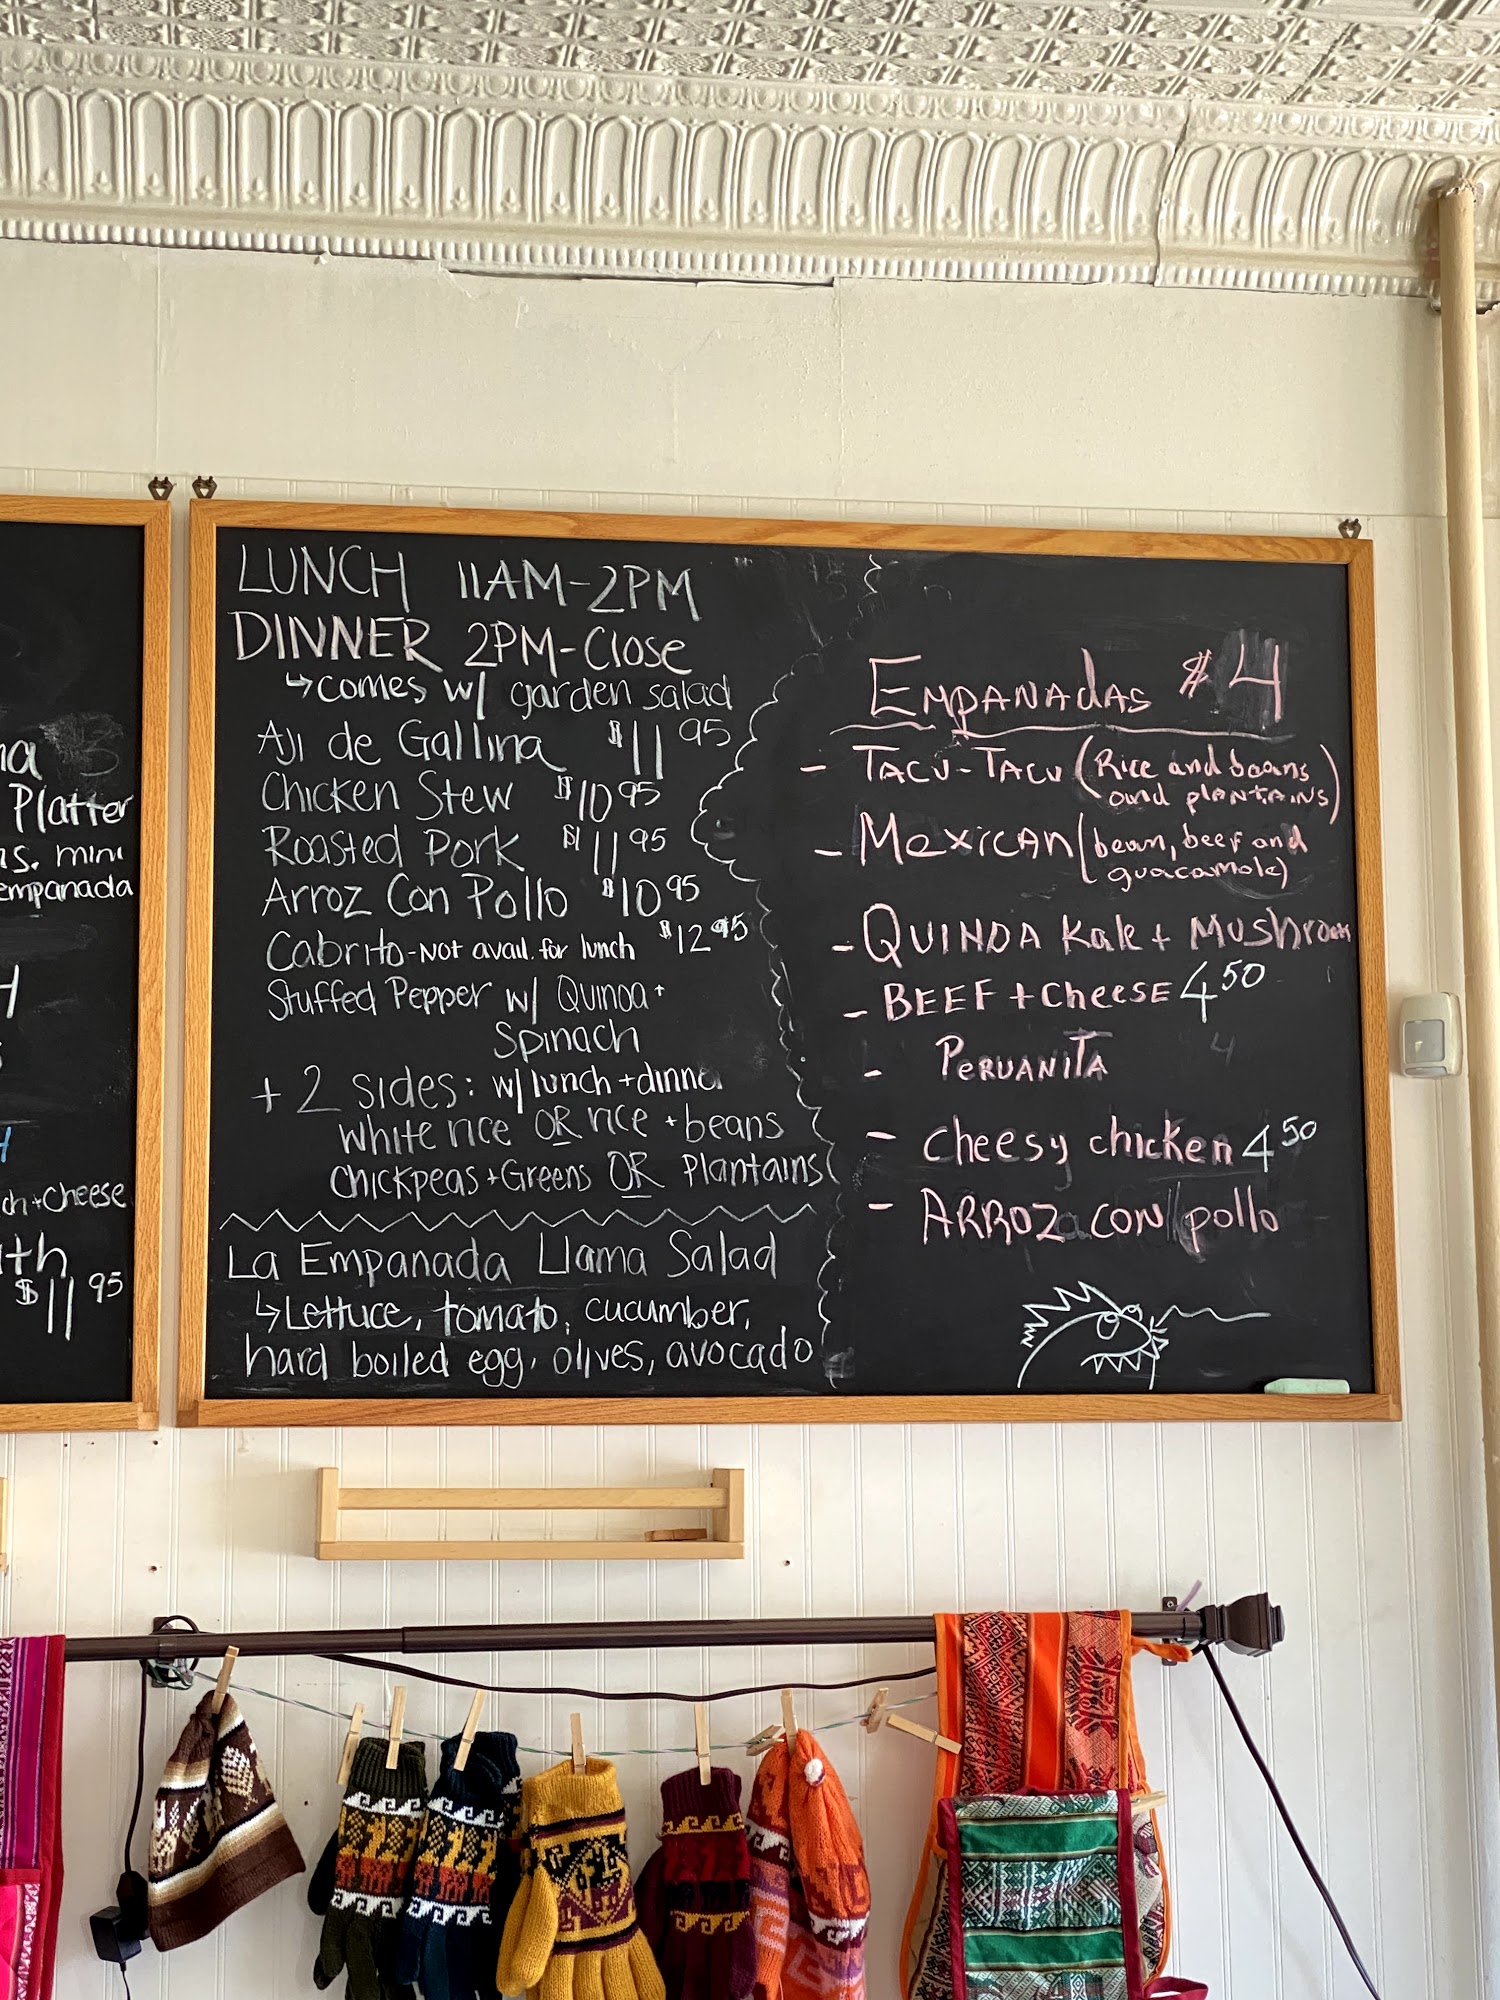 Platter
mini
empanada
Cheese
$11 95
LUNCH 11AM-2PM
DINNER 2PM-Close
↳comes w/ garden salad
Aji de Gallina $11 95
Chicken Stew $10 95
Roasted Pork $11 95
Arroz Con Pollo $10 95
Cabrito-Not avail. for lunch $12 95
Stuffed Pepper w/ Quinoa+
Spinach
+ 2 sides: w/ lunch + dinner
white rice OR rice + beans
chickpeas + Greens OR Plantains
La Empanada Llama Salad
↳Lettuce, tomato, cucumber,
hard boiled egg, olives, avocado
EMPANAdAS $4
- TACU-TACU (Rice and beans
and plantains)
- MexiCAN (bean, beef and
guacamole)
- QUINOA Kale + Mushroom
- BEEF + Cheese 4 50
- PERUANITA
- Cheesy chicken 4 50
- ARROZ CON pollo